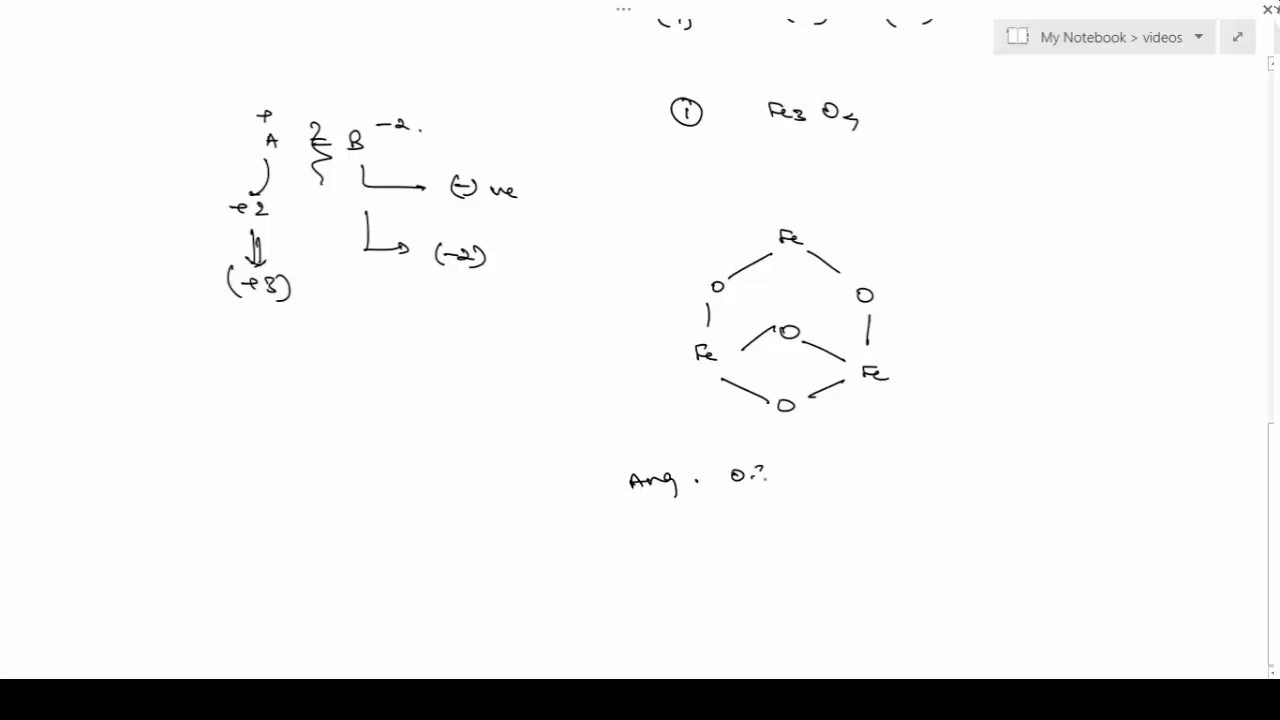 My Notebook > videos
+
A 2 B -2.
(-) ve
+2
(-2)
(+3)
① Fe3 O4
Fe
O O
O
Fe Fe
O
Avg. O.